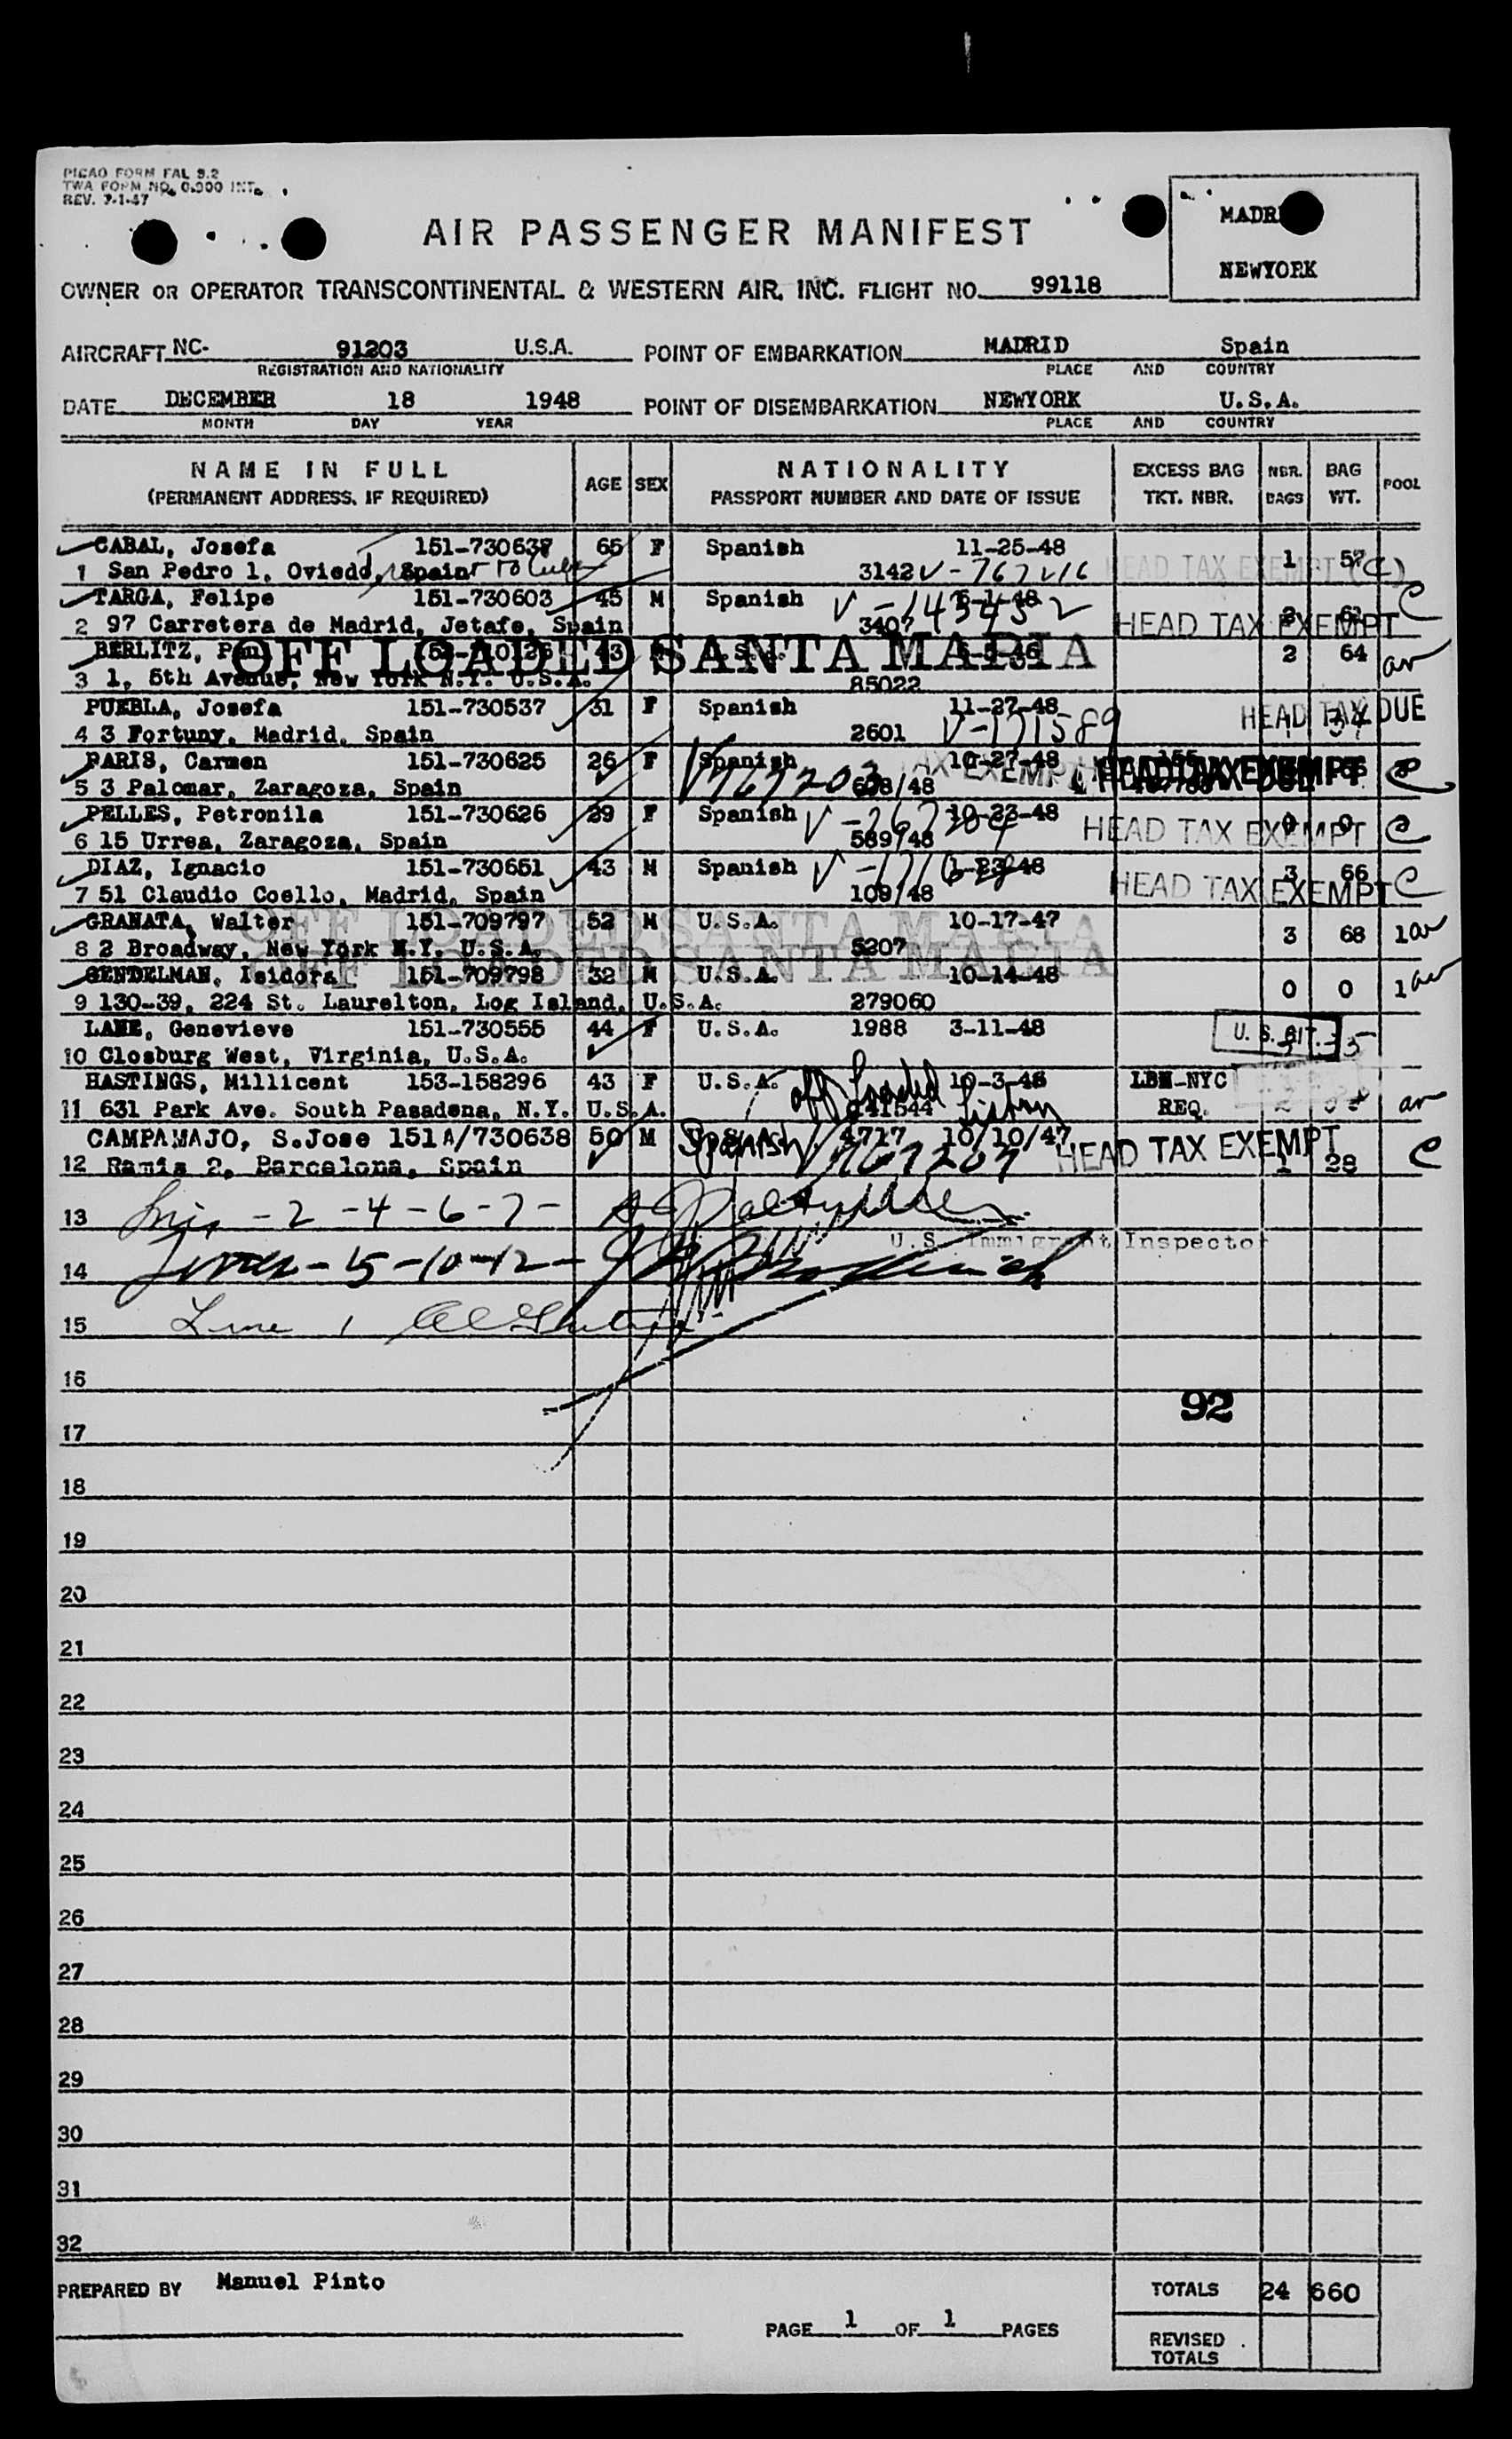 PICAO FORM FAL 9.2
TWA FORM NO. 0.900 INT.
REV. 7-1-47
AIR PASSENGER MANIFEST
MADR
NEWYORK
OWNER OR OPERATOR TRANSCONTINENTAL & WESTERN AIR, INC. FLIGHT NO. 99118
AIRCRAFT NC- 91203 U.S.A. POINT OF EMBARKATION MADRID Spain
REGISTRATION AND NATIONALITY PLACE AND COUNTRY
DATE DECEMBER 18 1948 POINT OF DISEMBARKATION NEWYORK U.S.A.
MONTH DAY YEAR PLACE AND COUNTRY
NAME IN FULL AGE SEX NATIONALITY EXCESS BAG NBR. BAG POOL
(PERMANENT ADDRESS, IF REQUIRED) PASSPORT NUMBER AND DATE OF ISSUE TKT. NBR. BAGS WT.
CABAL, Josefa 151-730637 65 F Spanish 11-25-48 1 57
1 San Pedro 1, Oviedo, Spain 3142 V-767216 HEAD TAX EXEMPT (C)
TARGA, Felipe 151-730603 45 M Spanish C
2 97 Carretera de Madrid, Jetafe, Spain 3407 HEAD TAX EXEMPT
BERLITZ, 43 2 64 av
OFF LOADED SANTA MARIA
3 1, 5th Avenue, New York N.Y. U.S.A. 85022
PUEBLA, Josefa 151-730537 31 F Spanish 11-27-48 HEAD TAX DUE
4 3 Fortuny, Madrid, Spain 2601 V-171589 1 34
PARIS, Carmen 151-730625 26 F Spanish 10-27-48 HEAD TAX EXEMPT C
5 3 Palomar, Zaragoza, Spain V767203 608/48
PELLES, Petronila 151-730626 29 F Spanish 10-23-48 0 0 C
6 15 Urrea, Zaragoza, Spain 589/48 HEAD TAX EXEMPT
DIAZ, Ignacio 151-730651 43 M Spanish 3 66 C
7 51 Claudio Coello, Madrid, Spain 109/48 HEAD TAX EXEMPT
GRANATA, Walter 151-709797 52 M U.S.A. 10-17-47 3 68 1 av
OFF LOADED SANTA MARIA
8 2 Broadway, New York N.Y. U.S.A. 5207
OFF LOADED SANTA MARIA
GENDELMAN, Isidora 151-709798 32 M U.S.A. 10-14-48 0 0 1 av
9 130-39, 224 St. Laurelton, Log Island, U.S.A. 279060
LANE, Genevieve 151-730555 44 F U.S.A. 1988 3-11-48 U. S. CIT.
10 Closburg West, Virginia, U.S.A.
HASTINGS, Millicent 153-158296 43 F U.S.A. off loaded Lisbon 10-3-48 LBN-NYC
11 631 Park Ave. South Pasadena, N.Y. U.S.A. 141544 REQ. av
CAMPAMAJO, S.Jose 151A/730638 50 M Spanish 4717 10/10/47 HEAD TAX EXEMPT C
12 Ramis 2, Barcelona, Spain V767207 1 28
13 -2-4-6-7-
U.S. Immigrant Inspector
14 -5-10-12-
15 Line 1
16
92
17
18
19
20
21
22
23
24
25
26
27
28
29
30
31
32
PREPARED BY Manuel Pinto TOTALS 24 660
PAGE 1 OF 1 PAGES
REVISED
TOTALS